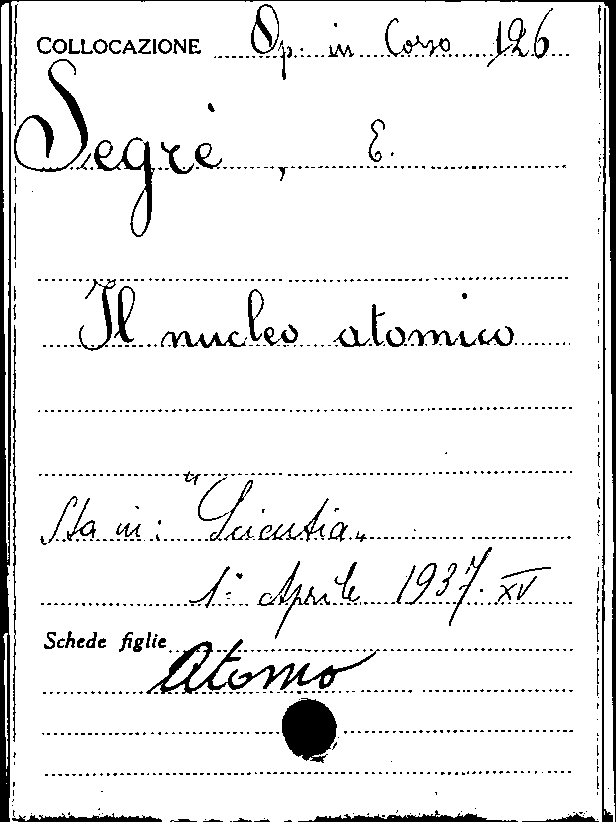 COLLOCAZIONE Op. in Corso 126
Segrè, E.
Il nucleo atomico
Sta in: "Scientia„
1° Aprile 1937. XV
Schede figlie
Atomo